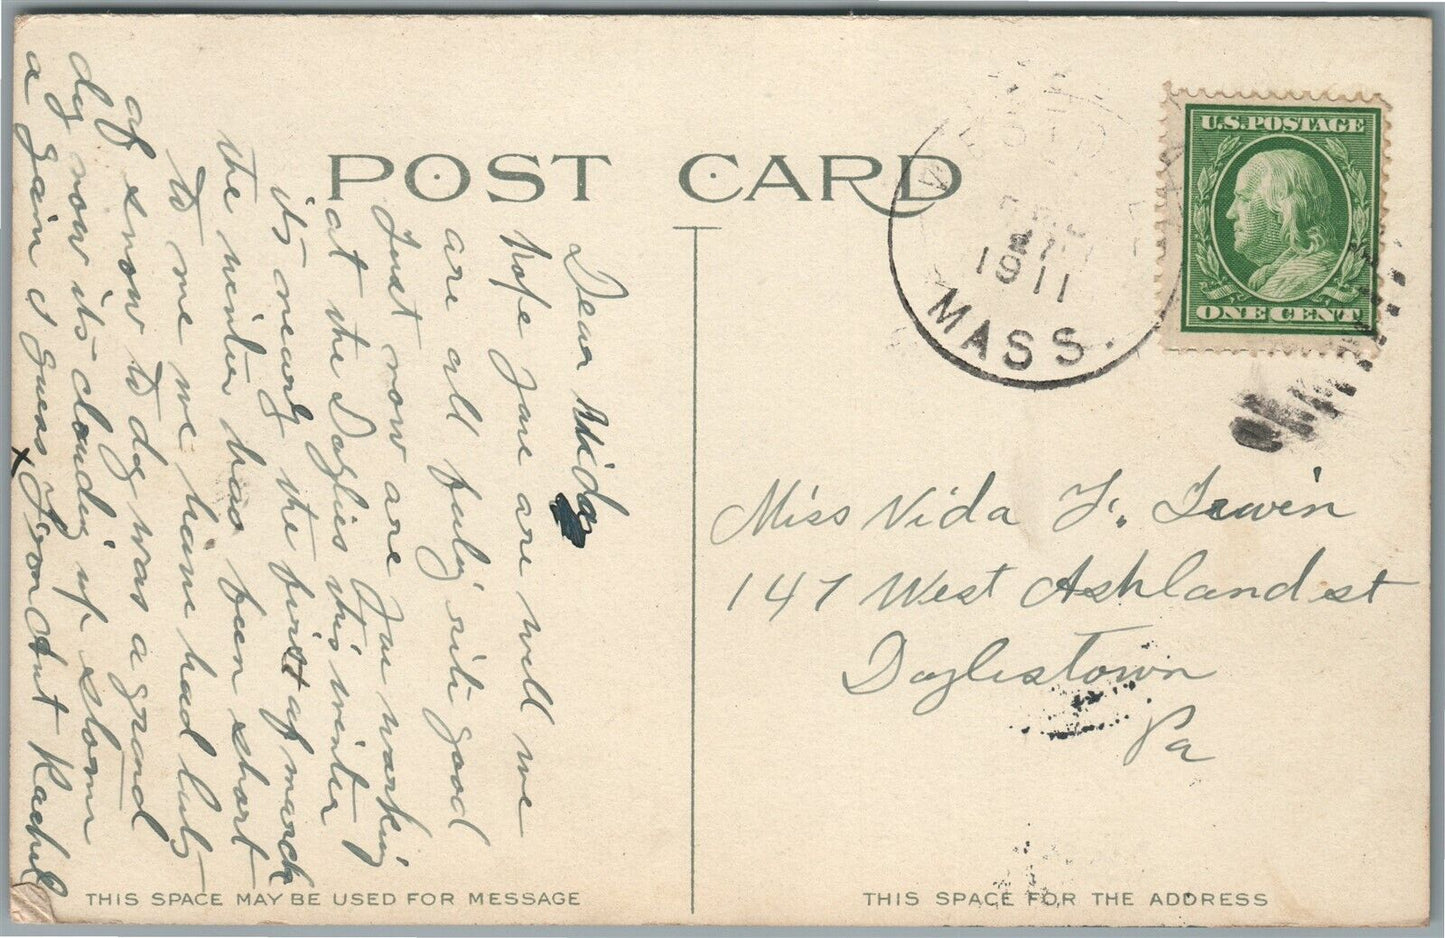 POST CARD
U.S. POSTAGE
ONE CENT
1911
MASS.
Dear Vida
hope you are well we
are all fuly rite good
Just now are you working
at the Daylies this winter
it's nearly the first of march
the winter has been short
to me we have had luty
of snow to day was a grand
dy now its clouding up storm
a gain I guess x from Ant Rachel
Miss Vida F. Irwin
147 West Ashland st
Doylestown
Pa
THIS SPACE MAY BE USED FOR MESSAGE
THIS SPACE FOR THE ADDRESS